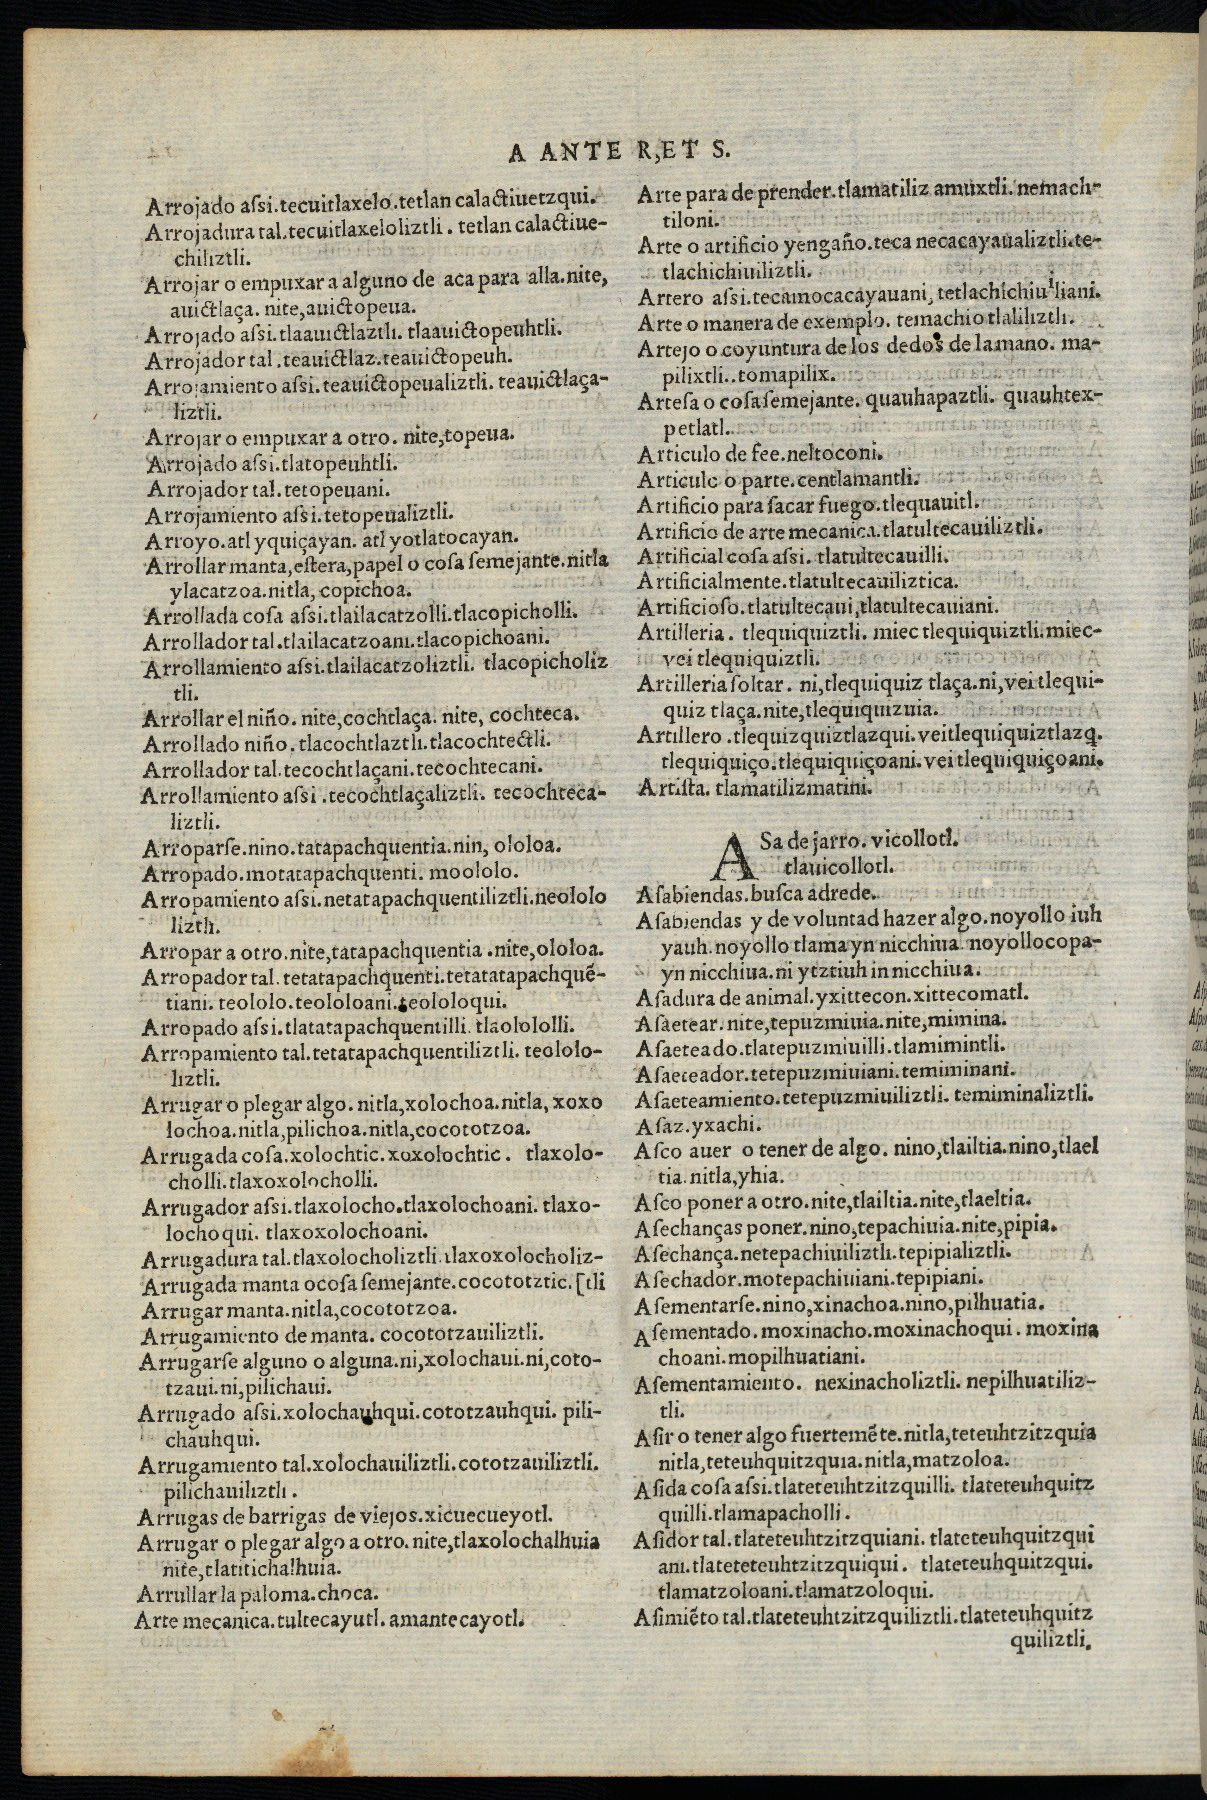 A ANTE R,ET S.
Arrojado assi.tecuitlaxelo.tetlan calactiuetzqui.
Arrojadura tal.tecuitlaxeloliztli . tetlan calactiue-
chiliztli.
Arrojar o empuxar a alguno de aca para alla.nite,
auictlaça. nite,auictopeua.
Arrojado assi.tlaauictlaztli. tlaauictopeuhtli.
Arrojador tal .teauictlaz.teauictopeuh.
Arrojamiento assi.teauictopeualiztli. teauictlaça-
liztli.
Arrojar o empuxar a otro. nite,topeua.
Arrojado assi.tlatopeuhtli.
Arrojador tal.tetopeuani.
Arrojamiento assi.tetopeualiztli.
Arroyo.atl yquiçayan. atl yotlatocayan.
Arrollar manta,estera,papel o cosa semejante.nitla
ylacatzoa.nitla,copichoa.
Arrollada cosa assi.tlailacatzolli.tlacopicholli.
Arrollador tal.tlailacatzoani.tlacopichoani.
Arrollamiento assi.tlailacatzoliztli. tlacopicholiz
tli.
Arrollar el niño. nite,cochtlaça. nite, cochteca.
Arrollado niño.tlacochtlaztli.tlacochtectli.
Arrollador tal.tecochtlaçani.tecochtecani.
Arrollamiento assi .tecochtlaçaliztli. tecochteca-
liztli.
Arroparse.nino.tatapachquentia.nin, ololoa.
Arropado.motatapachquenti. moololo.
Arropamiento assi.netatapachquentiliztli.neololo
liztli.
Arropar a otro.nite,tatapachquentia .nite,ololoa.
Arropador tal. tetatapachquenti.tetatatapachquẽ-
tiani. teololo.teololoani.teololoqui.
Arropado assi.tlatatapachquentilli. tlaolololli.
Arropamiento tal.tetatapachquentiliztli. teololo-
liztli.
Arrugar o plegar algo. nitla,xolochoa.nitla, xoxo
lochoa.nitla,pilichoa.nitla,cocototzoa.
Arrugada cosa.xolochtic.xoxolochtic. tlaxolo-
cholli.tlaxoxolocholli.
Arrugador assi.tlaxolocho.tlaxolochoani. tlaxo-
lochoqui. tlaxoxolochoani.
Arrugadura tal.tlaxolocholiztli.tlaxoxolocholiz-
Arrugada manta ocosa semejante.cocototztic. [tli
Arrugar manta.nitla,cocototzoa.
Arrugamiento de manta. cocototzauiliztli.
Arrugarse alguno o alguna.ni,xolochaui.ni,coto-
tzaui.ni,pilichaui.
Arrugado assi.xolochauhqui.cototzauhqui. pili-
chauhqui.
Arrugamiento tal.xolochauiliztli.cototzauiliztli.
pilichauiliztli .
Arrugas de barrigas de viejos.xicuecueyotl.
Arrugar o plegar algo a otro. nite,tlaxolochalhuia
nite,tlatitichalhuia.
Arrullar la paloma.choca.
Arte mecanica.tultecayutl.amantecayotl.
Arte para de prender.tlamatiliz amuxtli. nemach-
tiloni.
Arte o artificio y engaño.teca necacayaualiztli.te-
tlachichiuiliztli.
Artero assi.tecamocacayauani, tetlachichiuiliani.
Arte o manera de exemplo. temachiotlaliliztli.
Artejo o coyuntura de los dedos de la mano. ma-
pilixtli..tomapilix.
Artesa o cosa semejante. quauhapaztli. quauhtex-
petlatl.
Articulo de fee.neltoconi.
Articulo o parte.centlamantli.
Artificio para sacar fuego.tlequauitl.
Artificio de arte mecanica.tlatultecauiliztli.
Artificial cosa assi. tlatultecauilli.
Artificialmente.tlatultecauiliztica.
Artificioso.tlatultecaui,tlatultecauiani.
Artilleria. tlequiquiztli. miec tlequiquiztli.miec-
vei tlequiquiztli.
Artilleria soltar. ni,tlequiquiz tlaça.ni,vei tlequi-
quiz tlaça.nite,tlequiquizuia.
Artillero .tlequizquiztlazqui.veitlequiquiztlazq̃.
tlequiquiço.tlequiquiçoani.vei tlequiquiçoani.
Artista. tlamatilizmatini.
ASa de jarro. vicollotl.
tlauicollotl.
Asabiendas.busca adrede.
Asabiendas y de voluntad hazer algo.noyollo iuh
yauh.noyollo tlama yn nicchiua. noyollocopa-
yn nicchiua.ni ytztiuh in nicchiua.
Asadura de animal.yxittecon.xittecomatl.
Asaetear. nite,tepuzmiuia.nite,mimina.
Asaeteado.tlatepuzmiuilli.tlamimintli.
Asaeteador.tetepuzmiuiani.temiminani.
Asaeteamiento.tetepuzmiuiliztli. temiminaliztli.
Asaz.yxachi.
Asco auer o tener de algo. nino,tlailtia.nino,tlael
tia.nitla,yhia.
Asco poner a otro.nite,tlailtia.nite,tlaeltia.
Asechanças poner.nino,tepachiuia.nite,pipia.
Asechança.netepachiuiliztli.tepipializtli.
Asechador.motepachiuiani.tepipiani.
Asementarse.nino,xinachoa.nino,pilhuatia.
Asementado.moxinacho.moxinachoqui. moxina
choani.mopilhuatiani.
Asementamiento. nexinacholiztli. nepilhuatiliz-
tli.
Asir o tener algo fuertemẽte.nitla,teteuhtzitzquia
nitla,teteuhquitzquia.nitla,matzoloa.
Asida cosa assi.tlateteuhtzitzquilli. tlateteuhquitz
quilli.tlamapacholli.
Asidor tal.tlateteuhtzitzquiani. tlateteuhquitzqui
ani.tlateteteuhtzitzquiqui. tlateteuhquitzqui.
tlamatzoloani.tlamatzoloqui.
Asimiẽto tal.tlateteuhtzitzquiliztli.tlateteuhquitz
quiliztli.